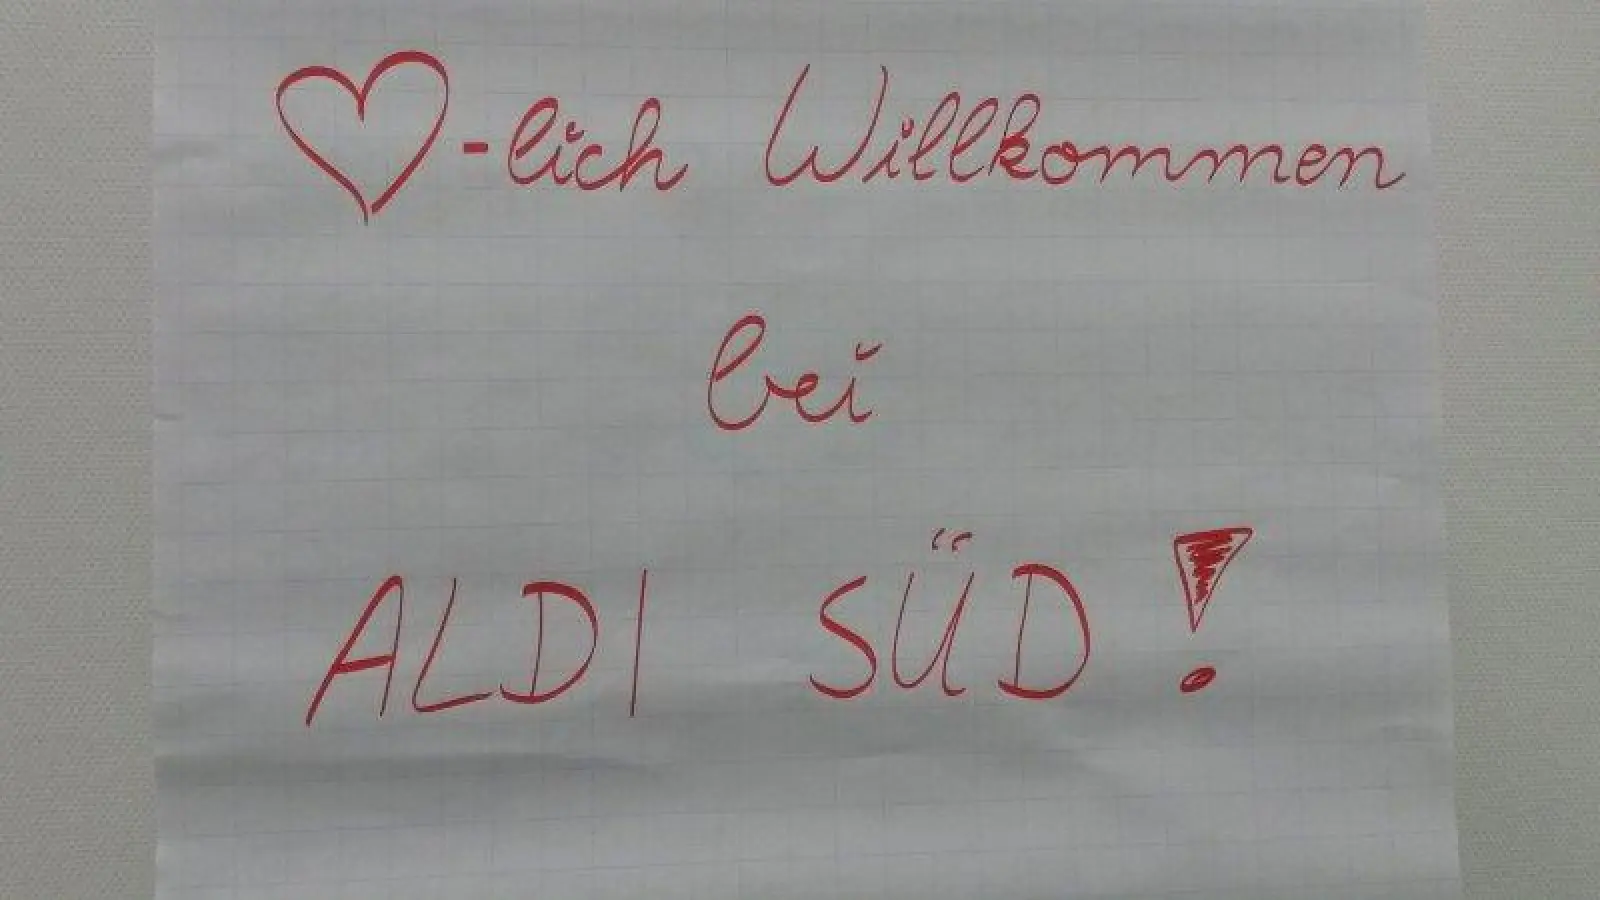 ♡-lich Willkommen
bei
ALDI SÜD!